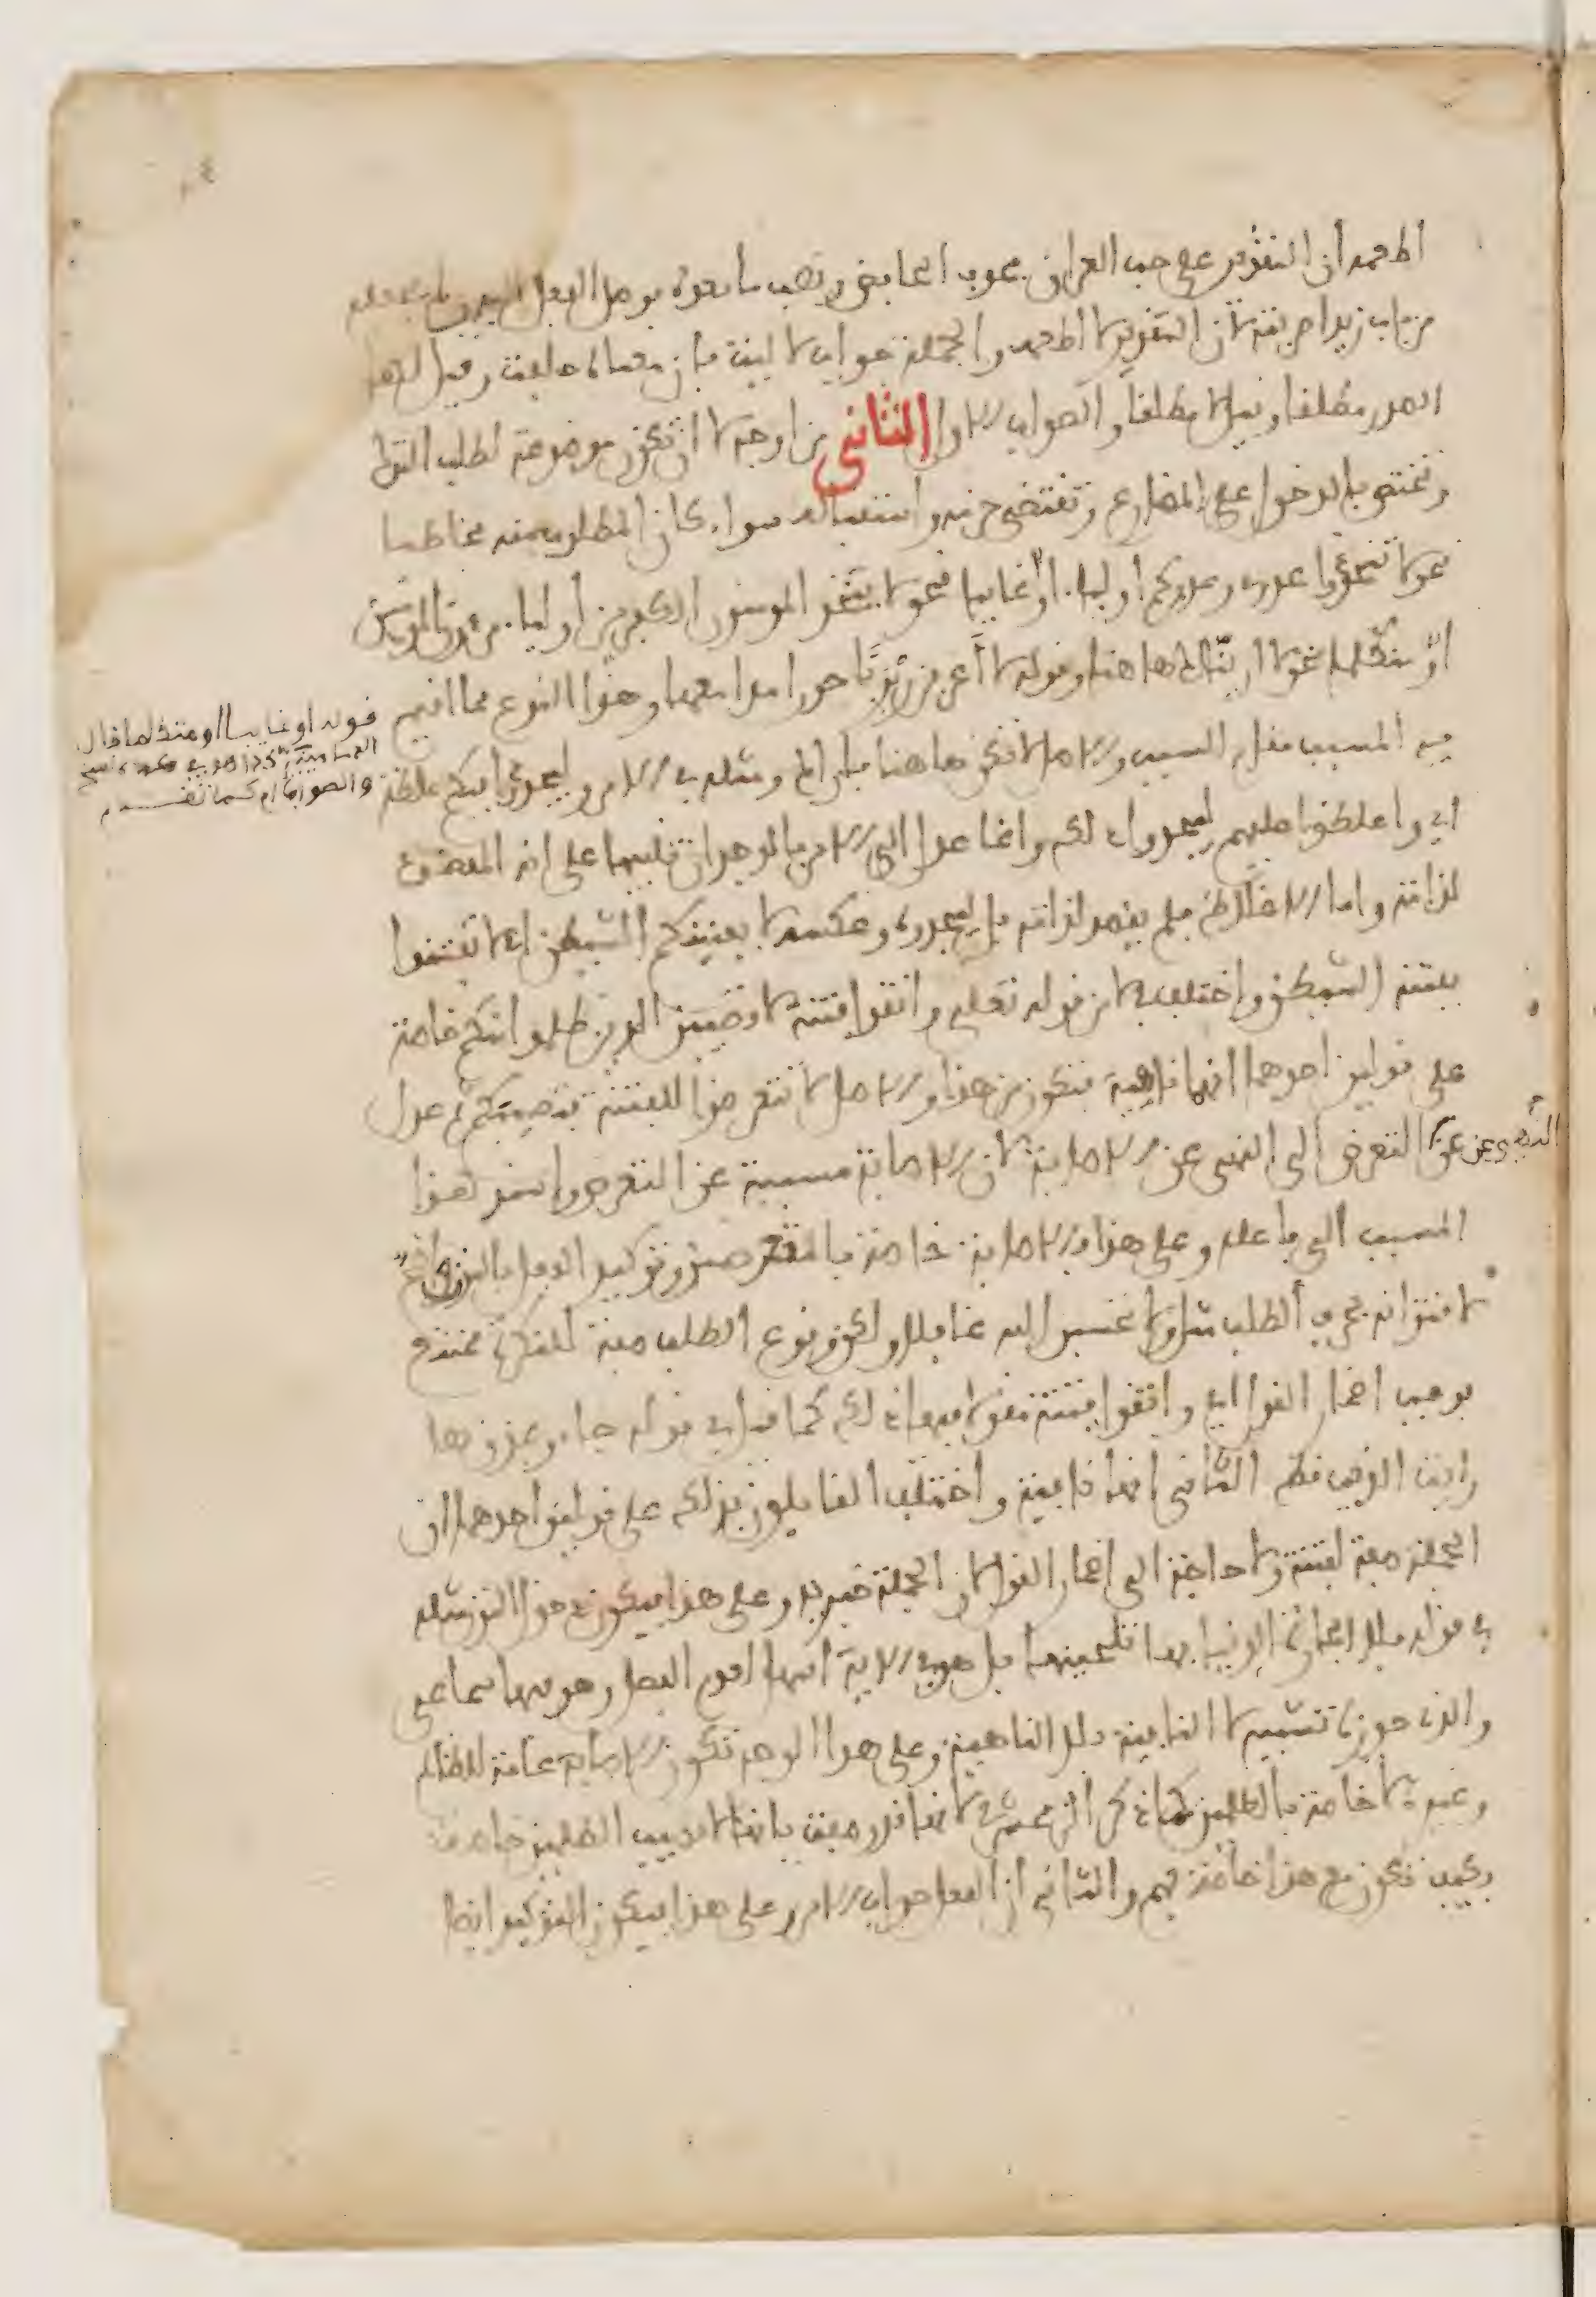 اطعمه ان التقدير على حب العراق فحذف الخافض ونصب ما بعده بوصل الفعل اليه ولم يجعله
من باب زيدا ضربته لان التقدير لا اطعمه والجملة جواب لاليت فان معناه حلفت وقيل لها
الصدر مطلقا وقيل لا مطلقا والصواب الاول الثاني من اوجه لا ان تكون موضوعة لطلب الترك
وتختص بالدخول على المضارع وتقتضي جزمه واستقباله سواء كان المطلوب منه مخاطبا
نحو لا تتخذوا عدوي وعدوكم أولياء او غايبا نحو لا يتخذ المومنون الكفرين أولياء من دون المومنين
او متكلما نحو لا ارينك هاهنا وقوله لا أعرفن ربربا حورا مدامعها وهذا النوع مما اقيم
فيه المسبب مقام السبب والاصل لا تكن هاهنا فأراك ومثله في الامر وليجدوا فيكم غلظة
اي واغلظوا عليهم ليجدوا ذلك وانما عدل الى الامر بالوجدان تنبيها على انه المقصود
لذاته واما الاغلاظ فلم يقصد لذاته بل ليجدوه وعكسه لا يفتننكم الشيطن اي لا تفتتنوا
بفتنة الشيطن واختلف في لا من قوله تعلى واتقوا فتنة لا تصيبن الذين ظلموا منكم خاصة
على قولين احدهما انها ناهية فتكون من هذا والاصل لا تتعرضوا للفتنة فتصيبكم ثم عدل
عن النهي عن التعرض الى النهي عن الاصابة لان الاصابة مسببة عن التعرض واسند هذا
المسبب الى فاعله وعلى هذا فالاصابة خاصة بالمتعرضين وتوكيد الفعل بالنون واضح
لاقترانه بحرف الطلب مثل ولا تحسبن الله غافلا ولكن وقوع الطلب صفة للنكرة ممتنع
فوجب اضمار القول اي واتقوا فتنة مقولا فيها ذلك كما قيل في قوله جاءوا بمذق هل
رايت الذيب قط الثاني انها نافية واختلف القايلون بذلك على قولين احدهما ان
الجملة صفة لفتنة ولا حاجة الى اضمار القول لان الجملة خبرية وعلى هذا فيكون دخول النون مثله
في قوله فلا الجارة الدنيا بها تلحينها بل هو في الاية اسهل لعدم الفصل وهو فيها سماعي
والذي جوزه تشبيه لا النافية بلا الناهية وعلى هذا الوجه تكون الاصابة عامة للظالم
وغيره لا خاصة بالظلمين كما ذكر الزمخشري لانها قد وصفت بانها لا تصيب الظلمين خاصة
فكيف تكون مع هذا خاصة بهم والثاني ان الفعل جواب الامر وعلى هذا فيكون التوكيد ايضا
قوله او غايبا او متكلما قال
الدماميني كذا هو في عدة نسخ
والصواب ام كما تقدم